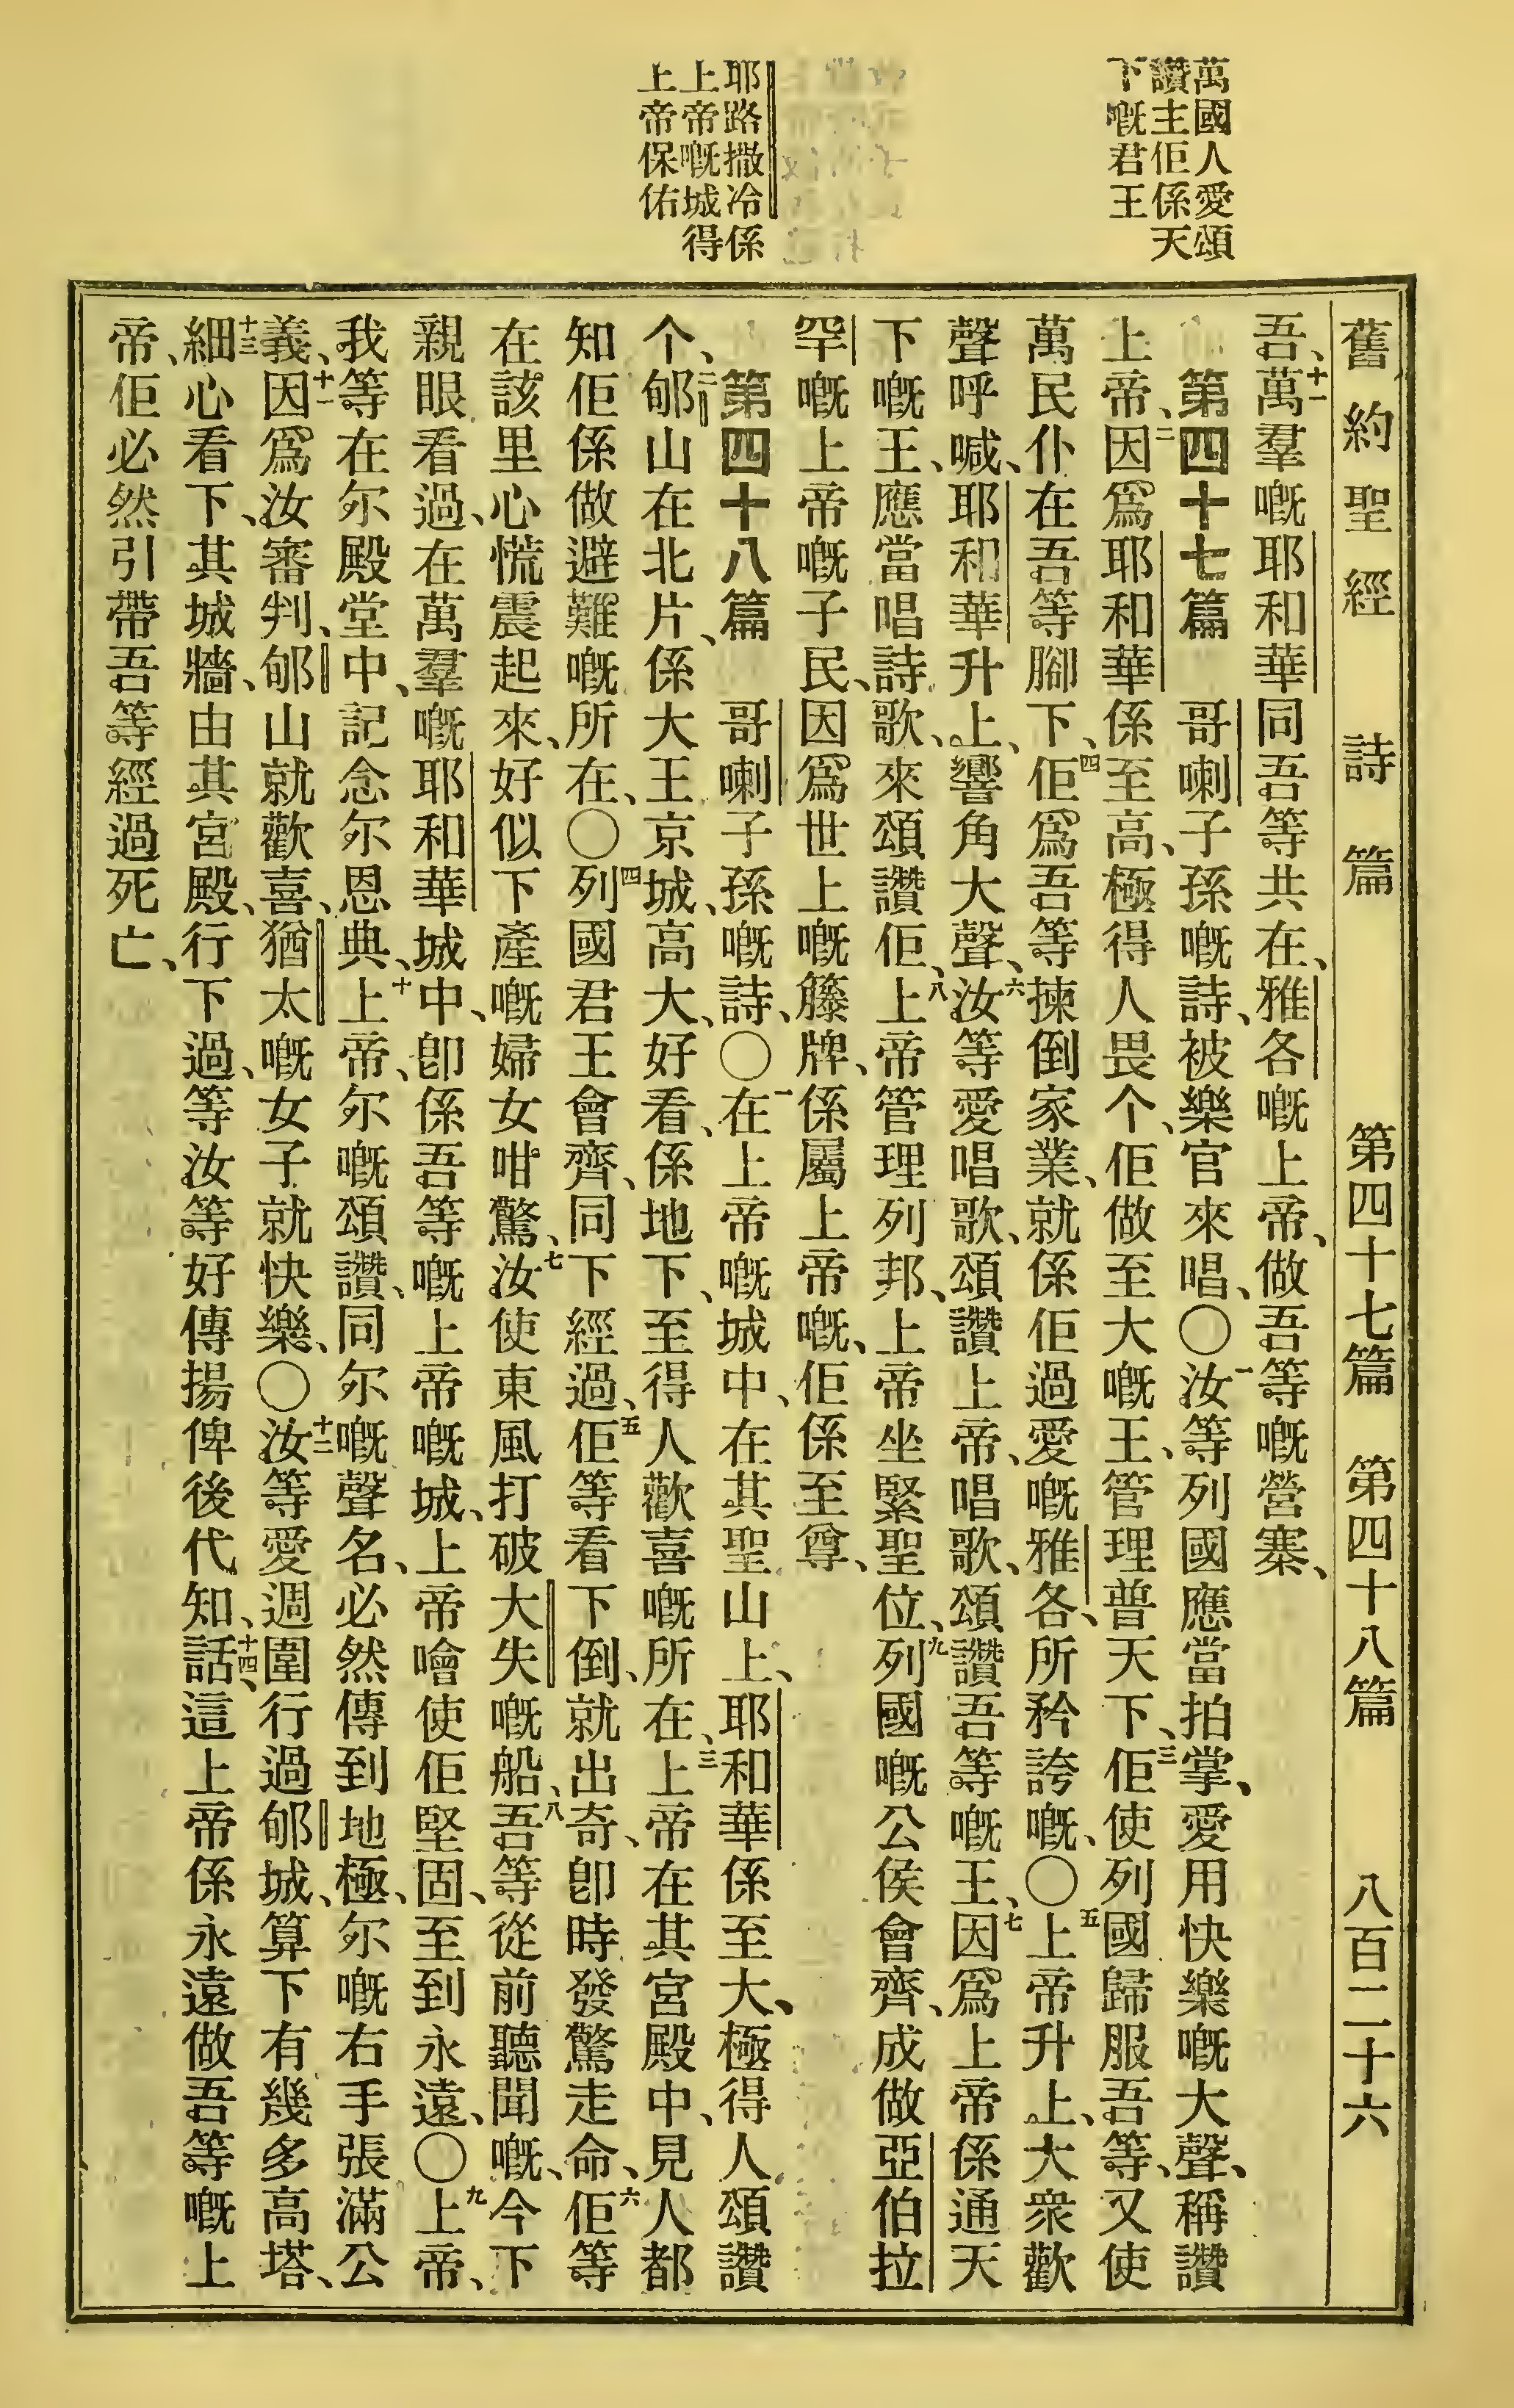 萬國人愛頌
讚主佢係天
下嘅君王
耶路撒冷係
上帝嘅城得
上帝保佑
舊約聖經 詩篇 第四十七篇 第四十八篇 八百二十六
吾、十一萬羣嘅耶和華同吾等共在、雅各嘅上帝、做吾等嘅營寨、
第四十七篇 哥喇子孫嘅詩、被樂官來唱、〇一汝等列國應當拍掌、愛用快樂嘅大聲、稱讚
上帝、二因爲耶和華係至高、極得人畏个、佢做至大嘅王、管理普天下、三佢使列國歸服吾等、又使
萬民仆在吾等腳下、四佢爲吾等揀倒家業、就係佢過愛嘅雅各、所矜誇嘅、〇五上帝升上、大衆歡
聲呼喊、耶和華升上、響角大聲、六汝等愛唱歌、頌讚上帝、唱歌、頌讚吾等嘅王、七因爲上帝係通天
下嘅王、應當唱詩歌、來頌讚佢、八上帝管理列邦、上帝坐緊聖位、九列國嘅公侯會齊、成做亞伯拉
罕嘅上帝嘅子民、因爲世上嘅籐牌、係屬上帝嘅、佢係至尊、
第四十八篇 哥喇子孫嘅詩、〇一在上帝嘅城中、在其聖山上、耶和華係至大、極得人頌讚
个、二郇山在北片、係大王京城、高大、好看、係地下、至得人歡喜嘅所在、三上帝在其宮殿中、見人都
知佢係做避難嘅所在、〇四列國君王會齊、同下經過、五佢等看下倒、就出奇、卽時發驚走命、六佢等
在該里心慌震起來、好似下產嘅婦女咁驚、七汝使東風打破大失嘅船、八吾等從前聽聞嘅、今下
親眼看過、在萬羣嘅耶和華城中、卽係吾等嘅上帝嘅城、上帝噲使佢堅固、至到永遠、〇九上帝、
我等在尔殿堂中、記念尔恩典、十上帝、尔嘅頌讚、同尔嘅聲名、必然傳到地極、尔嘅右手張滿公
義、十一因爲汝審判、郇山就歡喜、猶太嘅女子就快樂、〇十二汝等愛週圍行過郇城、算下有幾多高塔、
十三細心看下、其城牆、由其宮殿、行下過、等汝等好傳揚俾後代知、十四話、這上帝係永遠做吾等嘅上
帝、佢必然引帶吾等經過死亡、